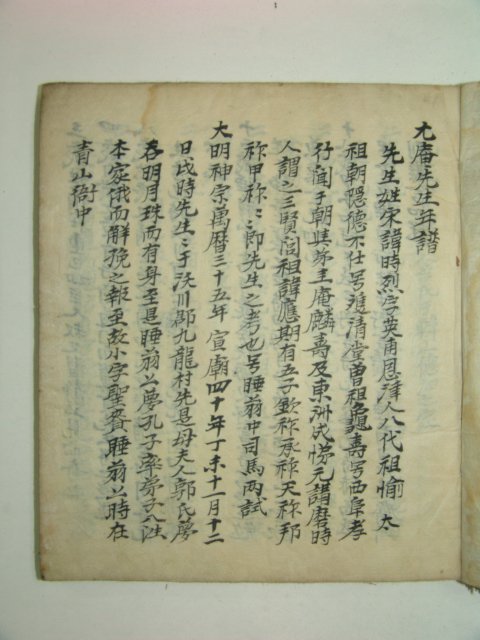 尤庵先生年譜
先生姓宋諱時烈字英甫恩津人八代祖愉 太
祖朝隱德不仕号雙淸堂曾祖龜壽号西阜孝
行聞于朝與弟圭庵麟壽及東洲成悌元講磨時
人謂之三賢閭祖諱應期有五子欽祚承祚天祚邦
祚甲祚甲祚々郎先生之考也号睡翁中司馬兩試
大明神宗萬曆三十五年 宣廟四十年丁未十一月十二
日戌時先生生于沃川郡九龍村先是母夫人郭氏夢
呑明月珠而有身至是睡翁公夢孔子率弟子八
本家俄而解娩之報至故小字聖賚睡翁公時在
靑山衙中